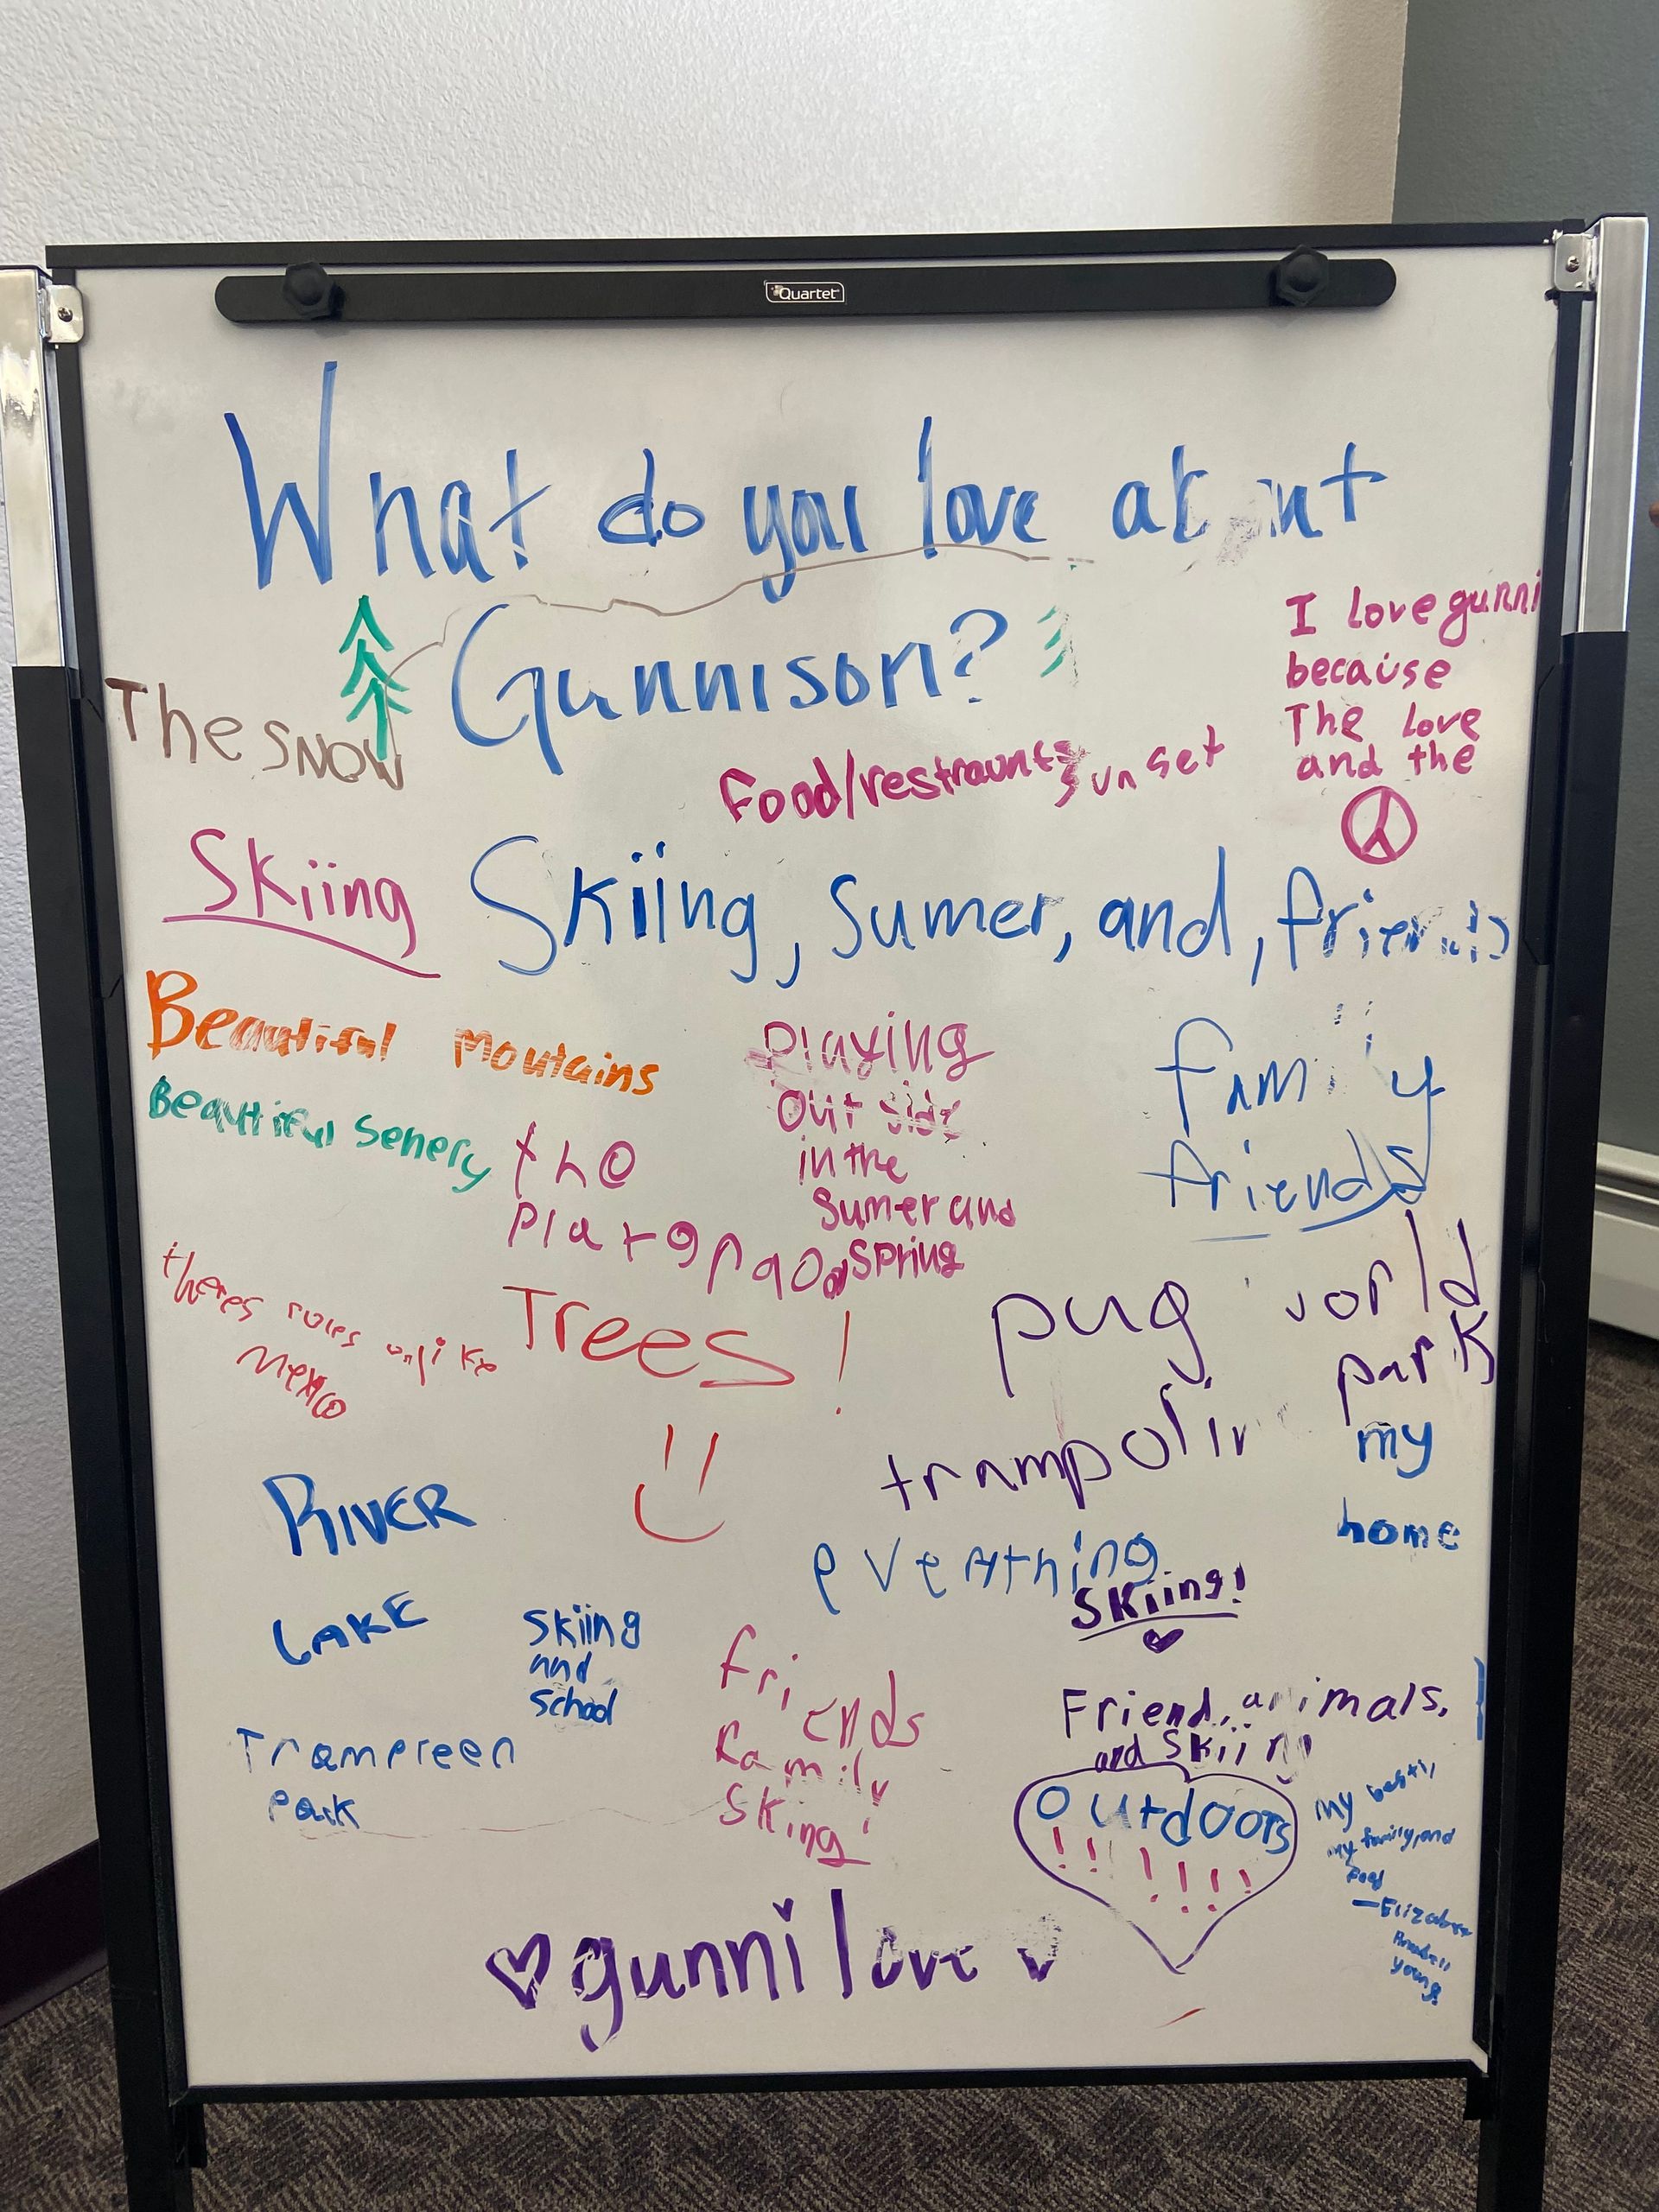 Quartet
What do you love about
Gunnison?
I love gunni
because
The love
and the
The SNOW
Food/restraunts
sunset
Skiing
Skiing, Sumer, and, friends
Beautiful Moutains
Beautiful Senery
Playing
Outside
in the
Sumer and
Spring
family
friends
the
theres rules unlike
Mexico
Trees!
pug world
park
trampolin
my
home
RIVER
everything
Skiing!
LAKE
Skiing
and
School
friends
family
Skiing!
Friend, animals,
and Skiing
Trampreen
Park
Outdoors
!!!!!!
my
my family, and
young
gunni love